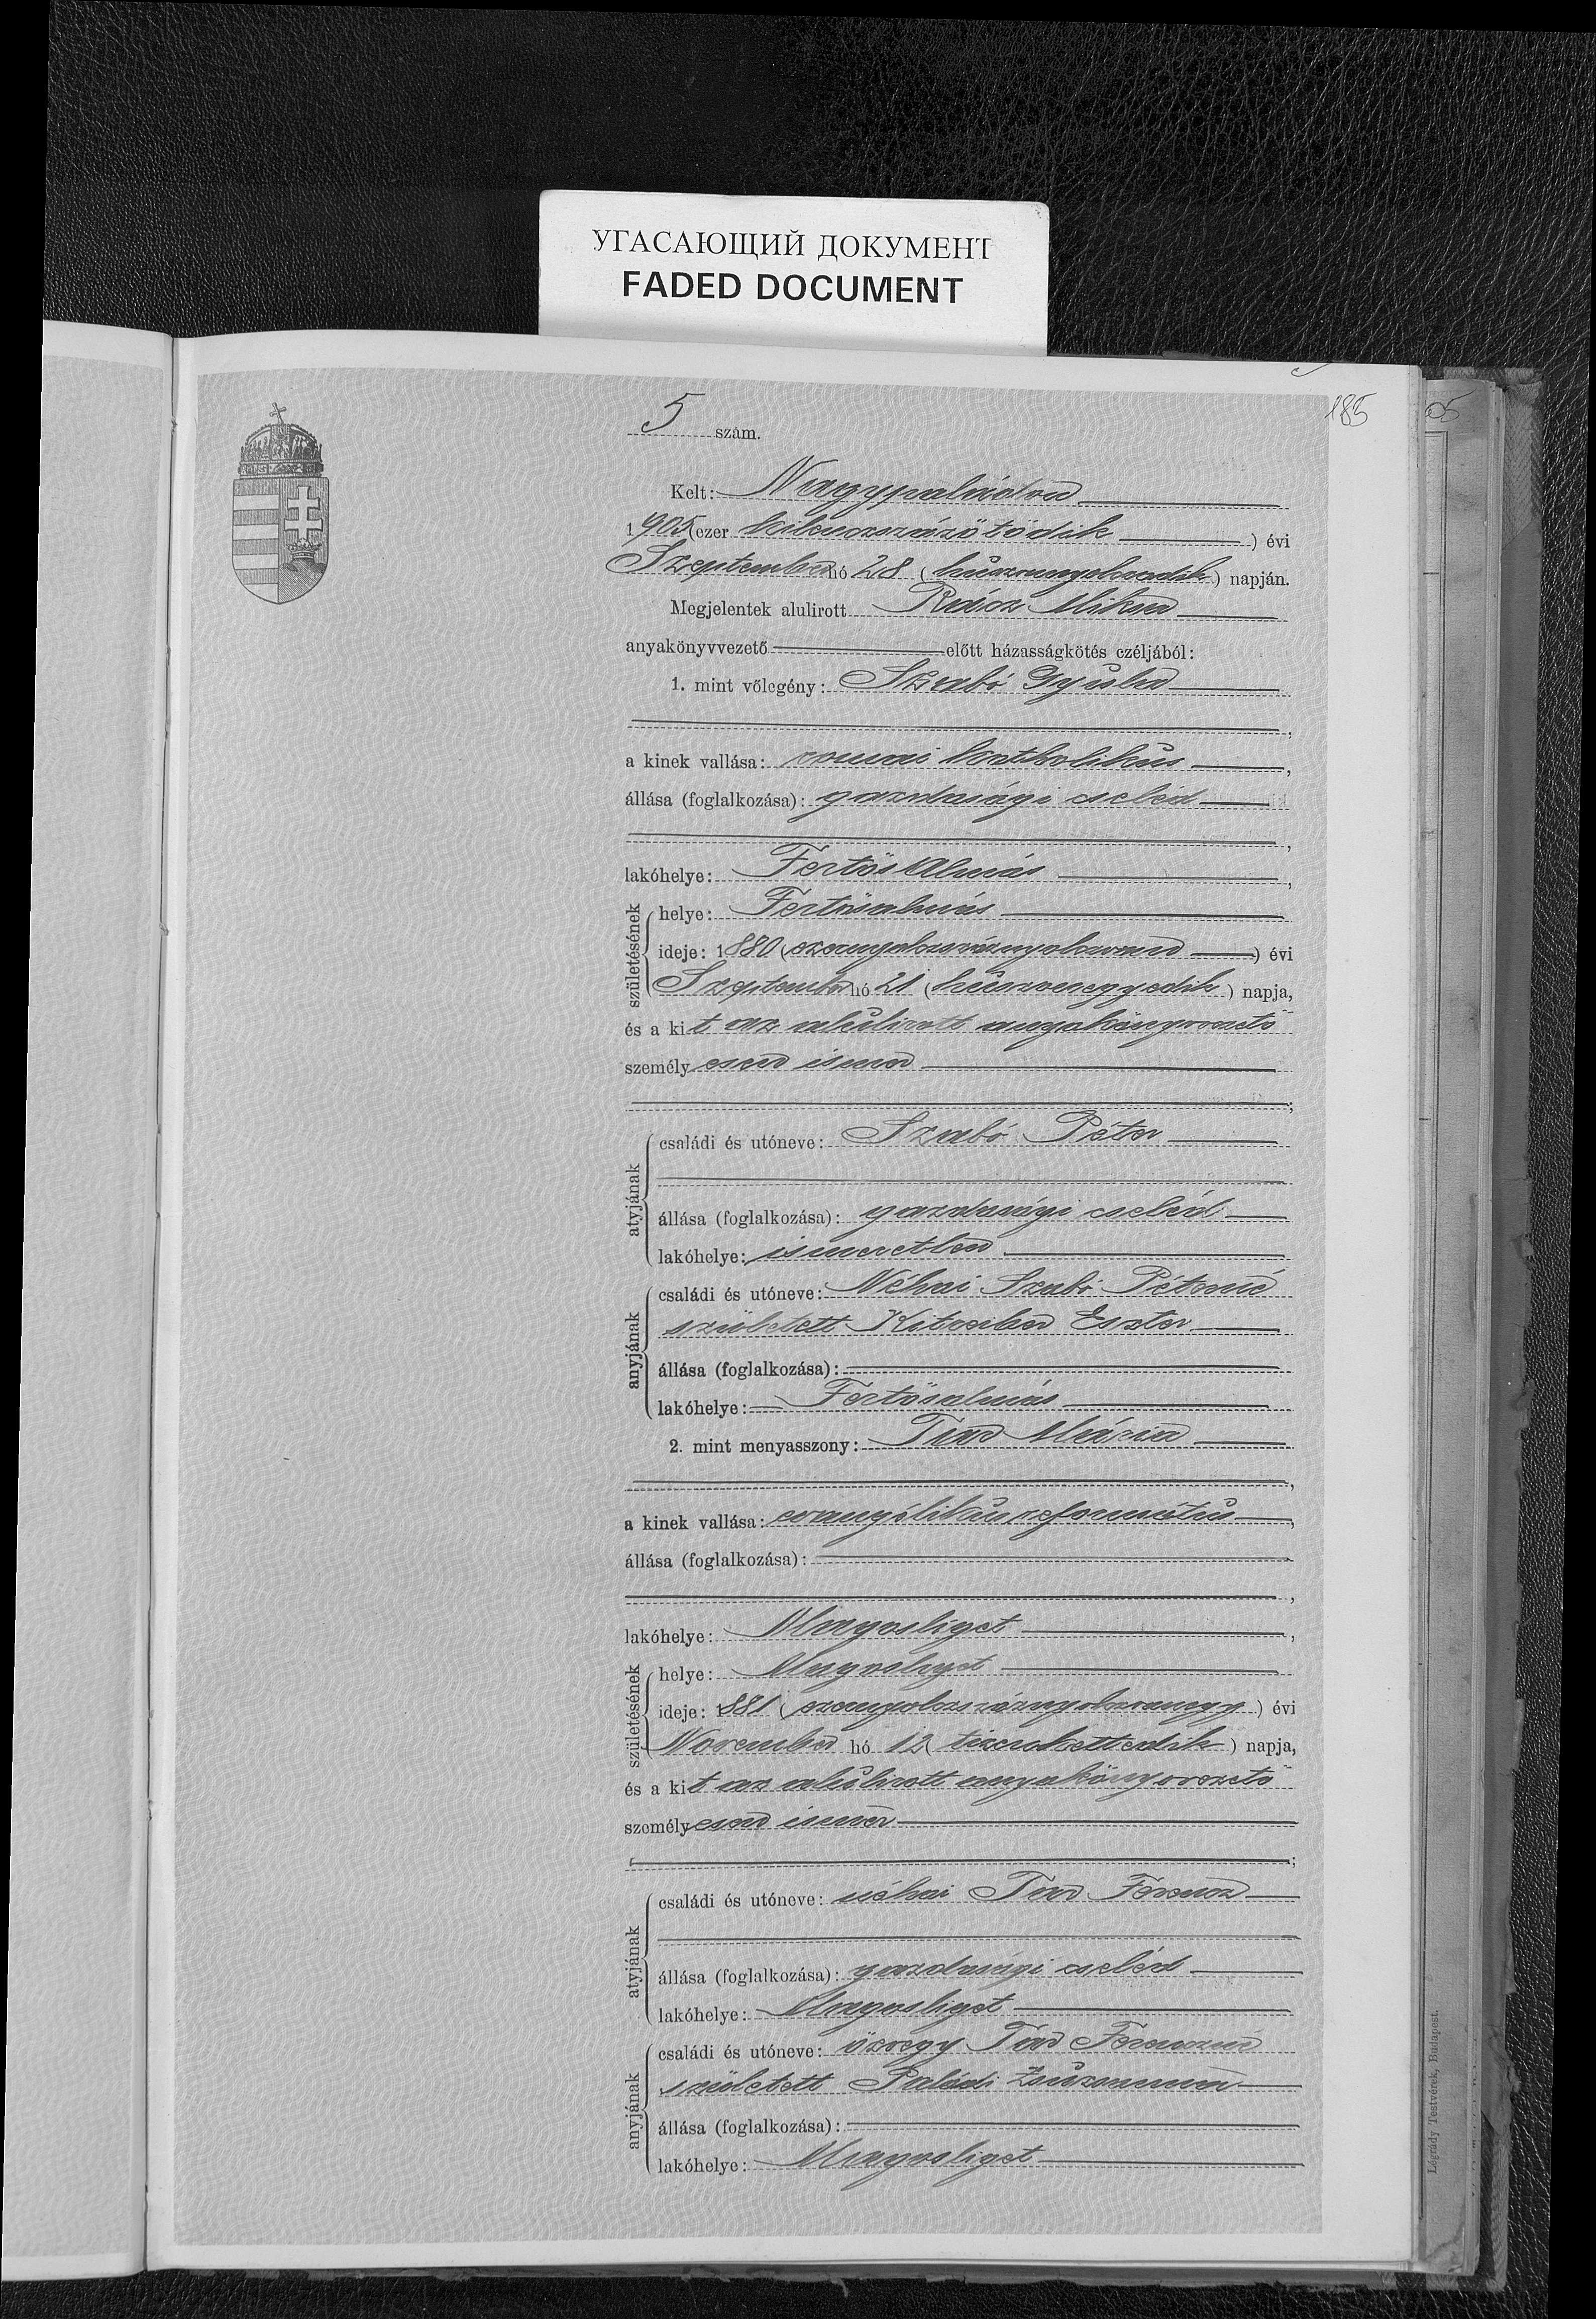 УГАСАЮЩИЙ ДОКУМЕНТ
FADED DOCUMENT
185
05
5 szám.
Kelt: Nagypaládon
1905 (ezer kilenczszázötödik) évi
Szeptember hó 28 (huszonnyolczadik) napján.
Megjelentek alulirott Rácz Miksa
anyakönyvvezető előtt házasságkötés czéljából:
1. mint vőlegény: Szabó Gyula
a kinek vallása: romai katholikus
állása (foglalkozása): gazdasági cseléd
lakóhelye: Fertösalmás
születésének
helye: Fertösalmás
ideje: 1880 (ezernyolczszáznyolczvan) évi
Szeptember hó 21 (huszonegyedik) napja,
és a kit az alulirott anyakönyvvezető
személyesen ismer
atyjának
családi és utóneve: Szabó Péter
állása (foglalkozása): gazdasági cseléd
lakóhelye: ismeretlen
anyjának
családi és utóneve: Néhai Szabó Péterné
született Eszter
állása (foglalkozása):
lakóhelye: Fertösalmás
2. mint menyasszony: Mária
a kinek vallása: evangélikus református
állása (foglalkozása):
lakóhelye: Magosliget
születésének
helye: Magosliget
ideje: 1881 (ezernyolczszáznyolczvanegy) évi
November hó 12 (tizenkettedik) napja,
és a kit az alulirott anyakönyvvezető
személyesen ismer
atyjának
családi és utóneve: néhai Ferencz
állása (foglalkozása): gazdasági cseléd
lakóhelye: Magosliget
anyjának
családi és utóneve: özvegy Ferenczné
született Paládi Zsuzsanna
állása (foglalkozása):
lakóhelye: Magosliget
Légrády Testvérek, Budapest.